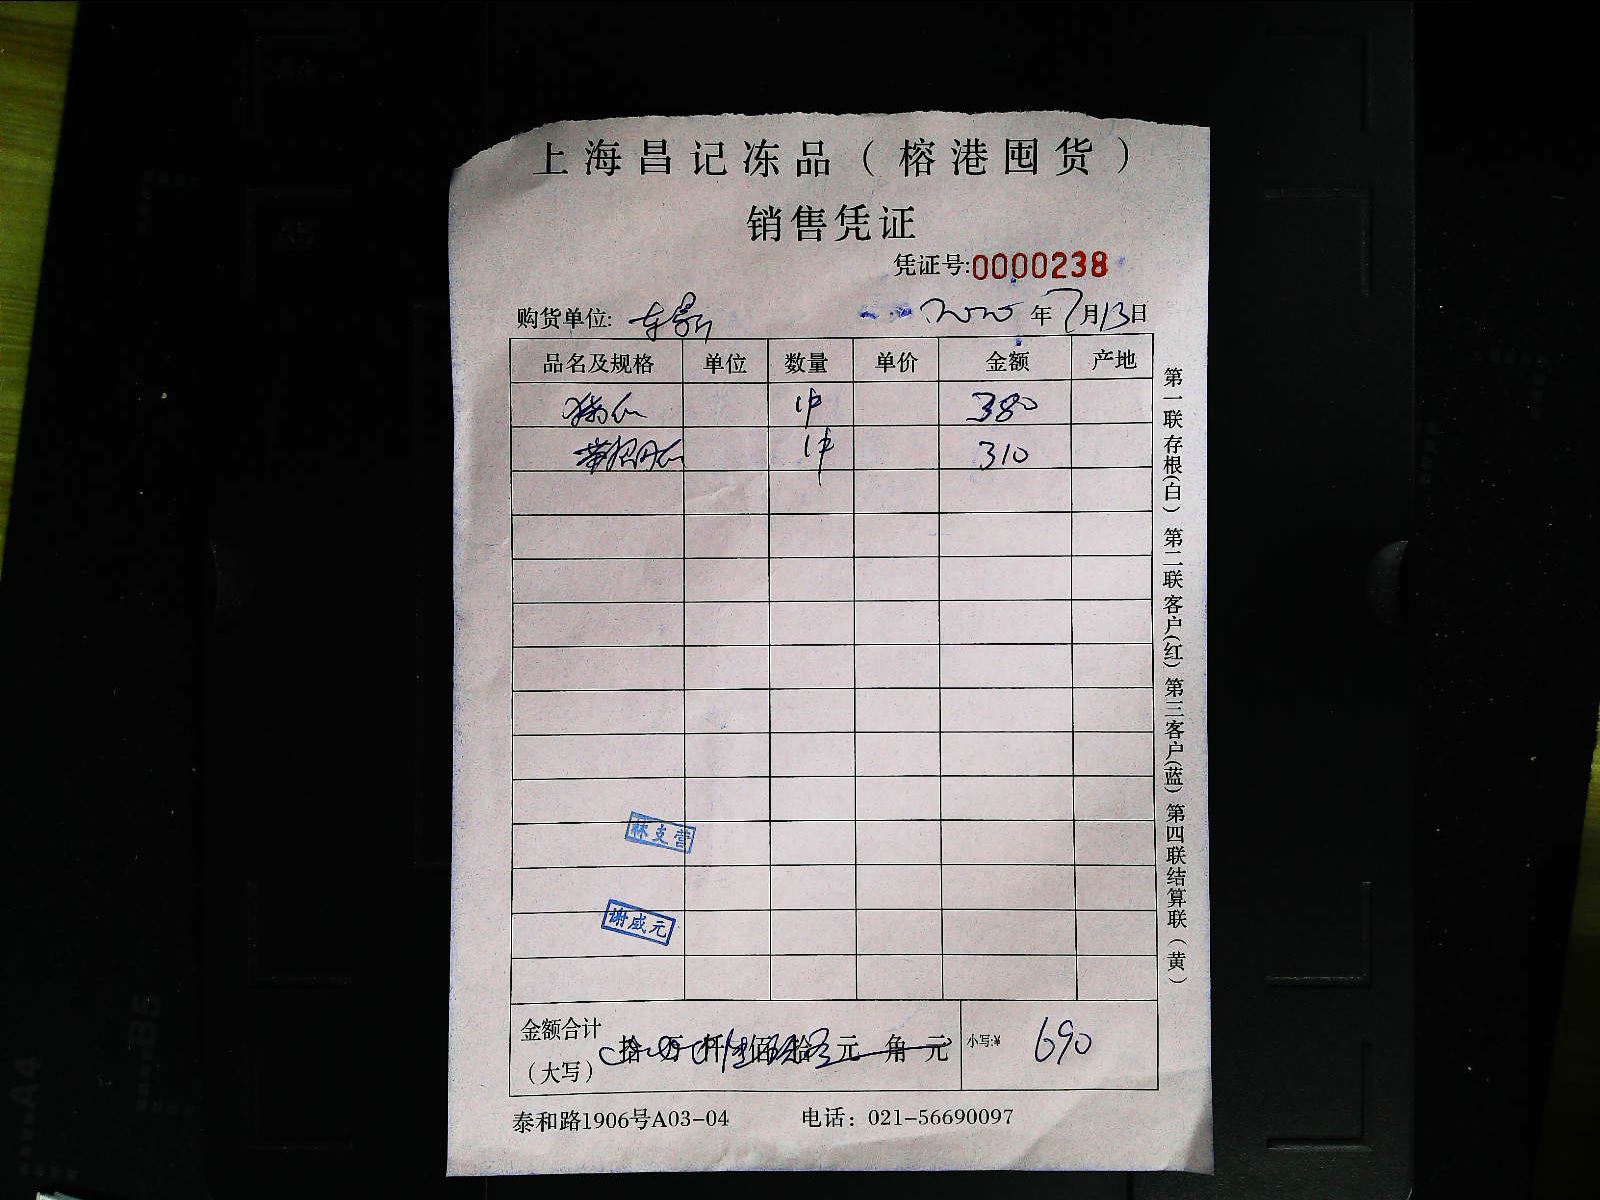 上海昌记冻品（榕港囤货）
销售凭证
凭证号:0000238
购货单位: 2020 年 7月13日
品名及规格 单位 数量 单价 金额 产地
1件 380
1件 310
林支营
谢威元
金额合计 拾 万 仟 佰 拾 元 角 元 小写:¥ 690
（大写）
泰和路1906号A03-04 电话：021-56690097
第一联存根(白) 第二联客户(红) 第三客户(蓝) 第四联结算联(黄)